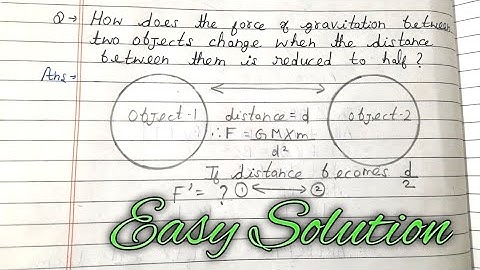 Q→ How does the force of gravitation between
two objects change when the distance
between them is reduced to half?
Ans→
Object-1 distance = d object-2
∴F = G M×m
d²
If distance becomes d/2
F' = ? ① ⟷ ②
Easy Solution